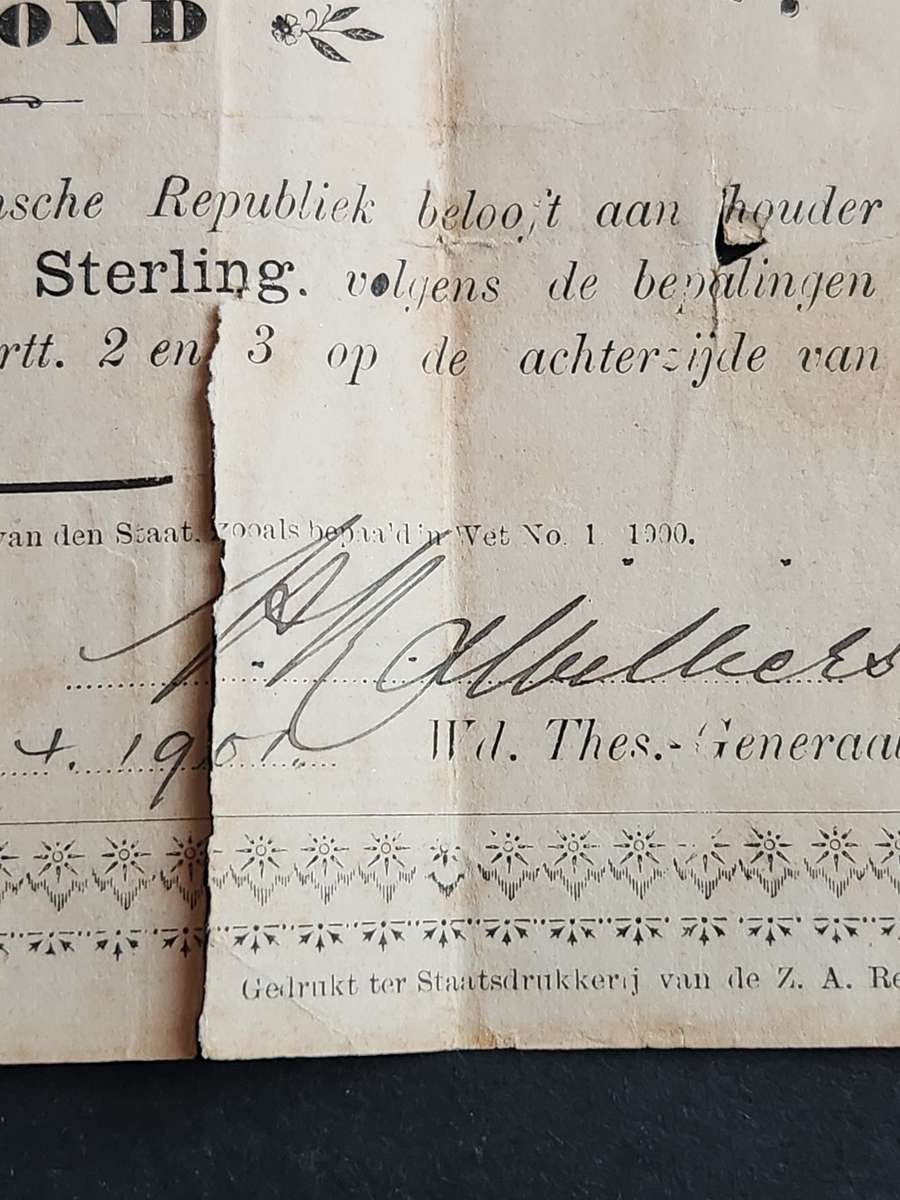 OND
sche Republiek belooft aan houder
Sterling. volgens de bepalingen
rtt. 2 en 3 op de achterzijde van
van den Staat, zooals bepaald in Wet No. 1 1900.
4. 1901.
Wd. Thes.-Generaal
Gedrukt ter Staatsdrukkerij van de Z. A. Re